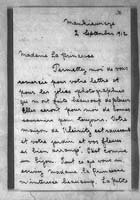 2 Septembre 1912
Madame La Princesse
Permettez moi de vous
remercier pour votre lettre et
pour les jolies photographies
qui m'ont faits beaucoup de plaisir
Elles seront pour moi de bons
souvenirs pour toujours. Votre
maison de est ravissant
et votre jardin et vos fleurs
si bien arrangé. C'est comme
un bijou. Tout ce que vous m'
écrivez madame La Princesse
m'intéresse beaucoup. La petite